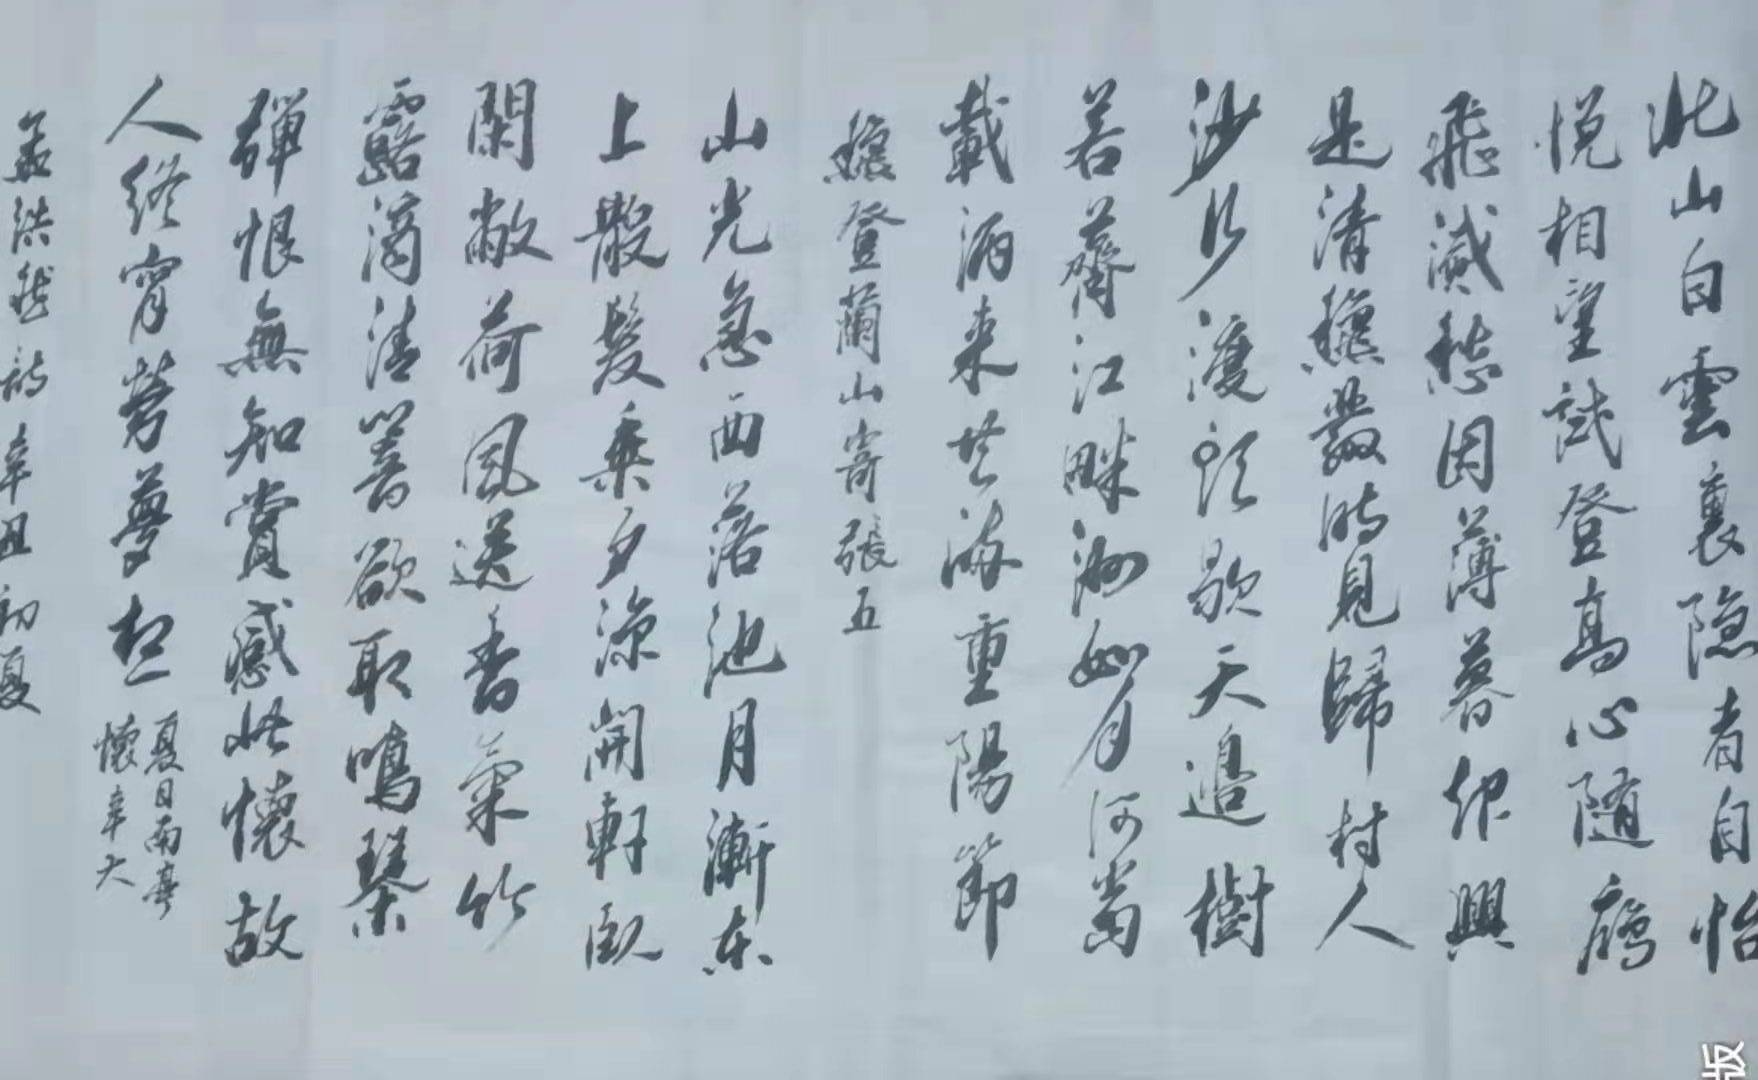 北山白雲裏隐者自怡
悦相望試登高心随鴈
飛滅愁因薄暮起興
是清穐發时見歸村人
沙行渡頭歇天邊樹
若薺江畔洲如月何當
載酒来共醉重陽節
穐登蘭山寄張五
山光忽西落池月漸东
上散髮乘夕涼開軒臥
閑敞荷風送香氣竹
露滴清響欲取鳴琴
彈恨無知賞感此懷故
人終宵勞夢想
夏日南亭
懷辛大
孟浩然詩辛丑初夏